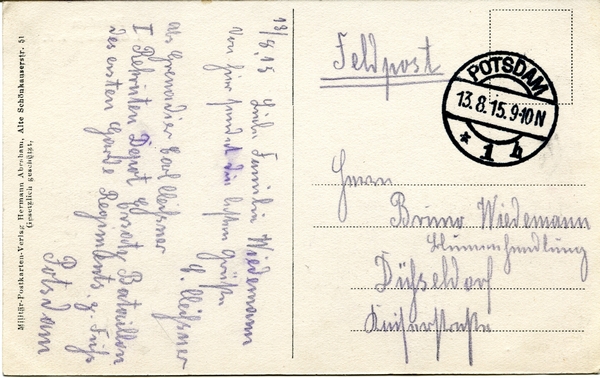 13/8.15
Liebe Familie Wiedemann
von hier sendet die besten Grüße
C. Meißner
als Grenadier Carl Meißner
I Rekruten Depot Ersatz Bataillon
des ersten Garde Regiments z. Fuß
Potsdam
Militär-Postkarten-Verlag Hermann Abraham, Alte Schönhauserstr. 51
Gesetzlich geschützt.
Feldpost
POTSDAM
13.8.15.9-10N
* 1 h
Herrn
Bruno Wiedemann
Blumenhandlung
Düsseldorf
Kaiserstraße